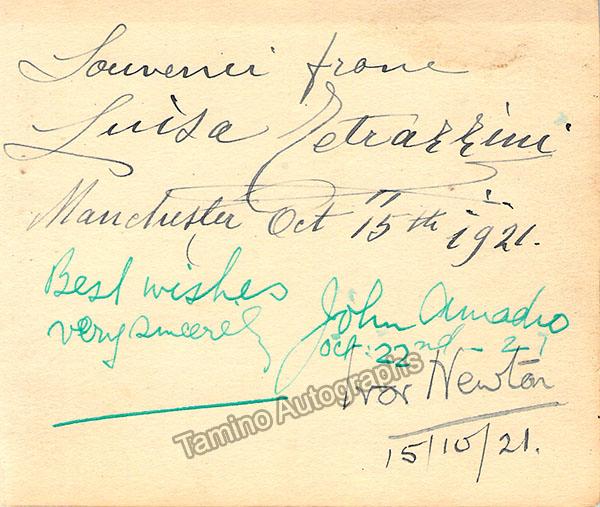 Souvenir from
Luisa Tetrazzini
Manchester Oct 15th 1921.
Best wishes
very sincerely
John Amadio
Oct: 22nd - 27
Ivor Newton
15/10/21.
Tamino Autographs